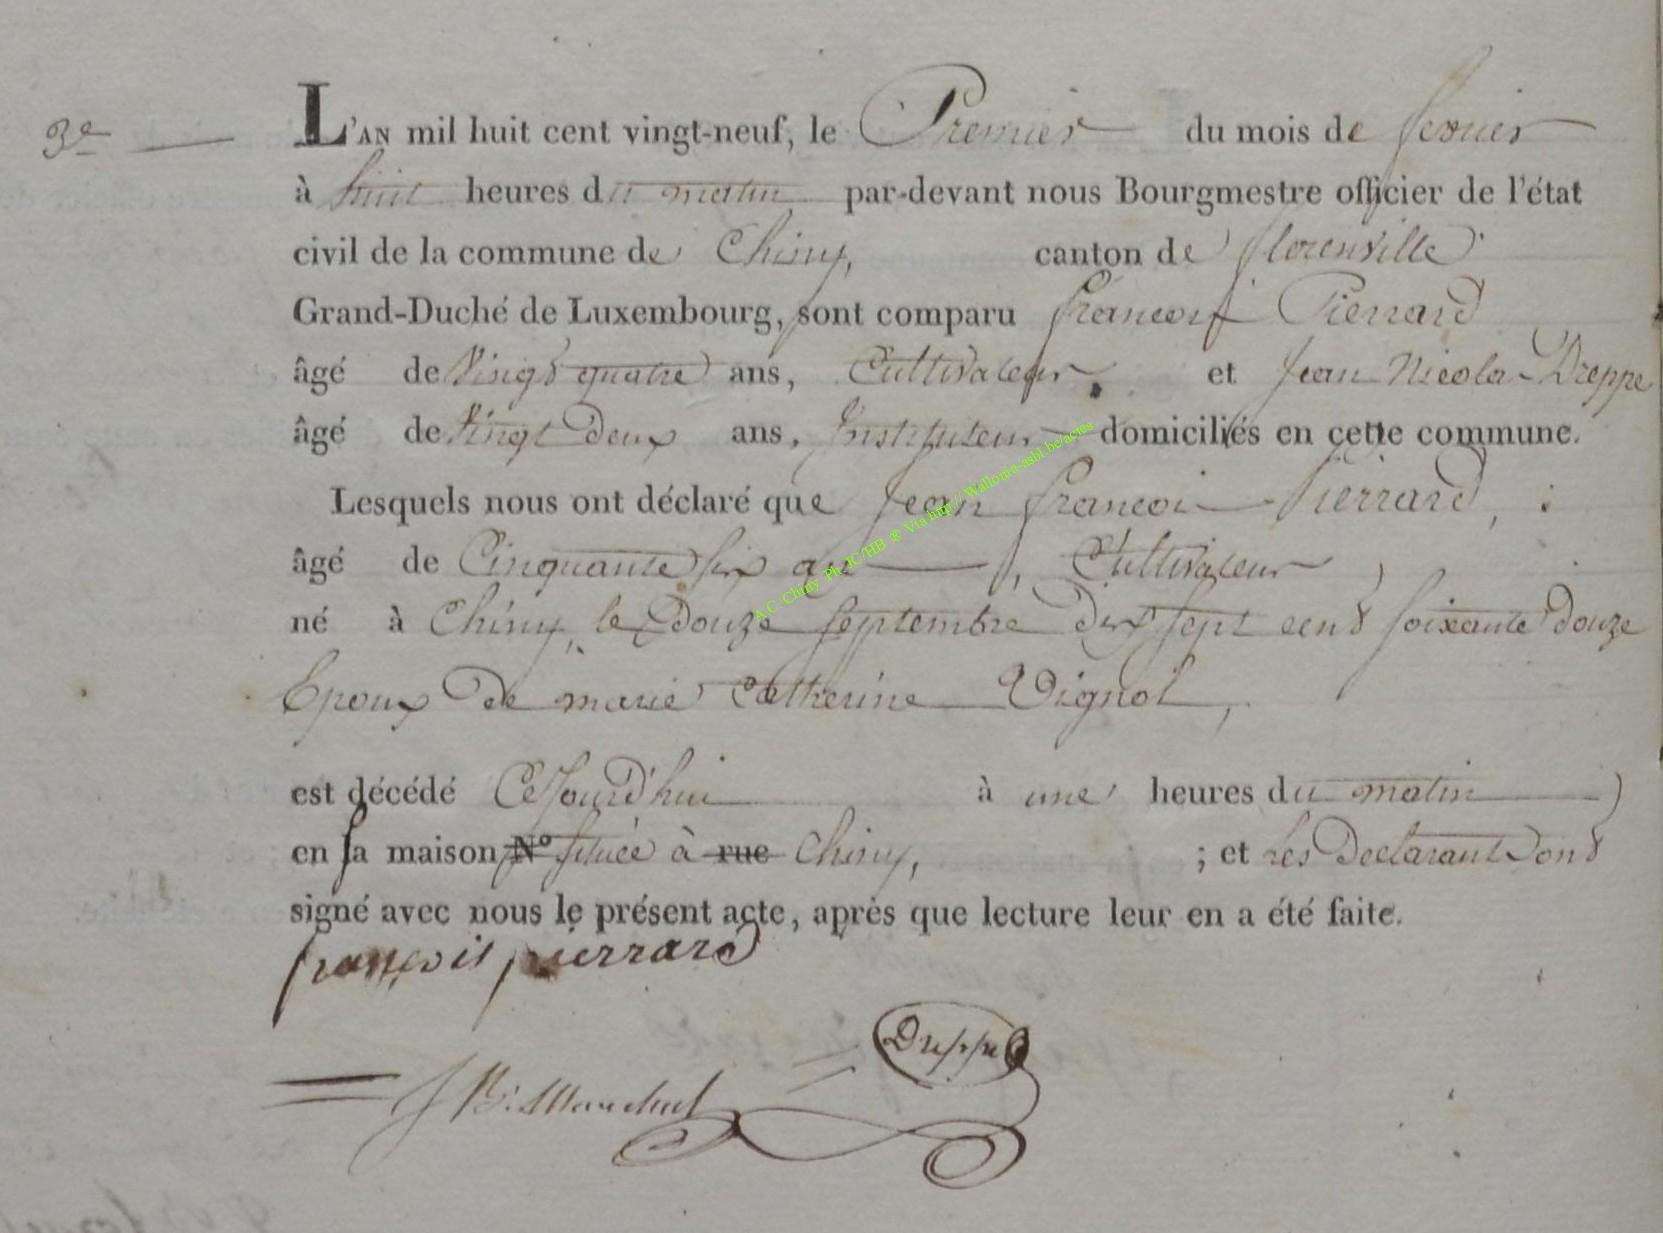 3e L'AN mil huit cent vingt-neuf, le Premier du mois de fevrier
à huit heures du matin par-devant nous Bourgmestre officier de l'état
civil de la commune de Chiny, canton de florenville
Grand-Duché de Luxembourg, sont comparu françois Pierrard
âgé de Vingt quatre ans, Cultivateur, et Jean Nicolas Dreppe
âgé de Vingt Deux ans, Instituteur domiciliés en cette commune.
Lesquels nous ont déclaré que Jean françois Pierrard,
âgé de Cinquante six ans, Cultivateur
né à Chiny, le Douze septembre Dix sept cent soixante Douze
Epoux De marie Catherine Vignol,
est décédé Cejourd'hui à une heures du matin
en sa maison N° située à rue Chiny, ; et Les Declarant ont
signé avec nous le présent acte, après que lecture leur en a été faite.
françois pierrard
Dreppe
J B
A.C. Chiny Ph. JC/HB @ Via http://Wallonia-asbl.be/actes